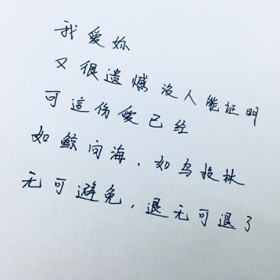 我爱妳
又很遗憾没人能证明
可這份爱已经
如鲸向海，如鸟投林
无可避免，退无可退了